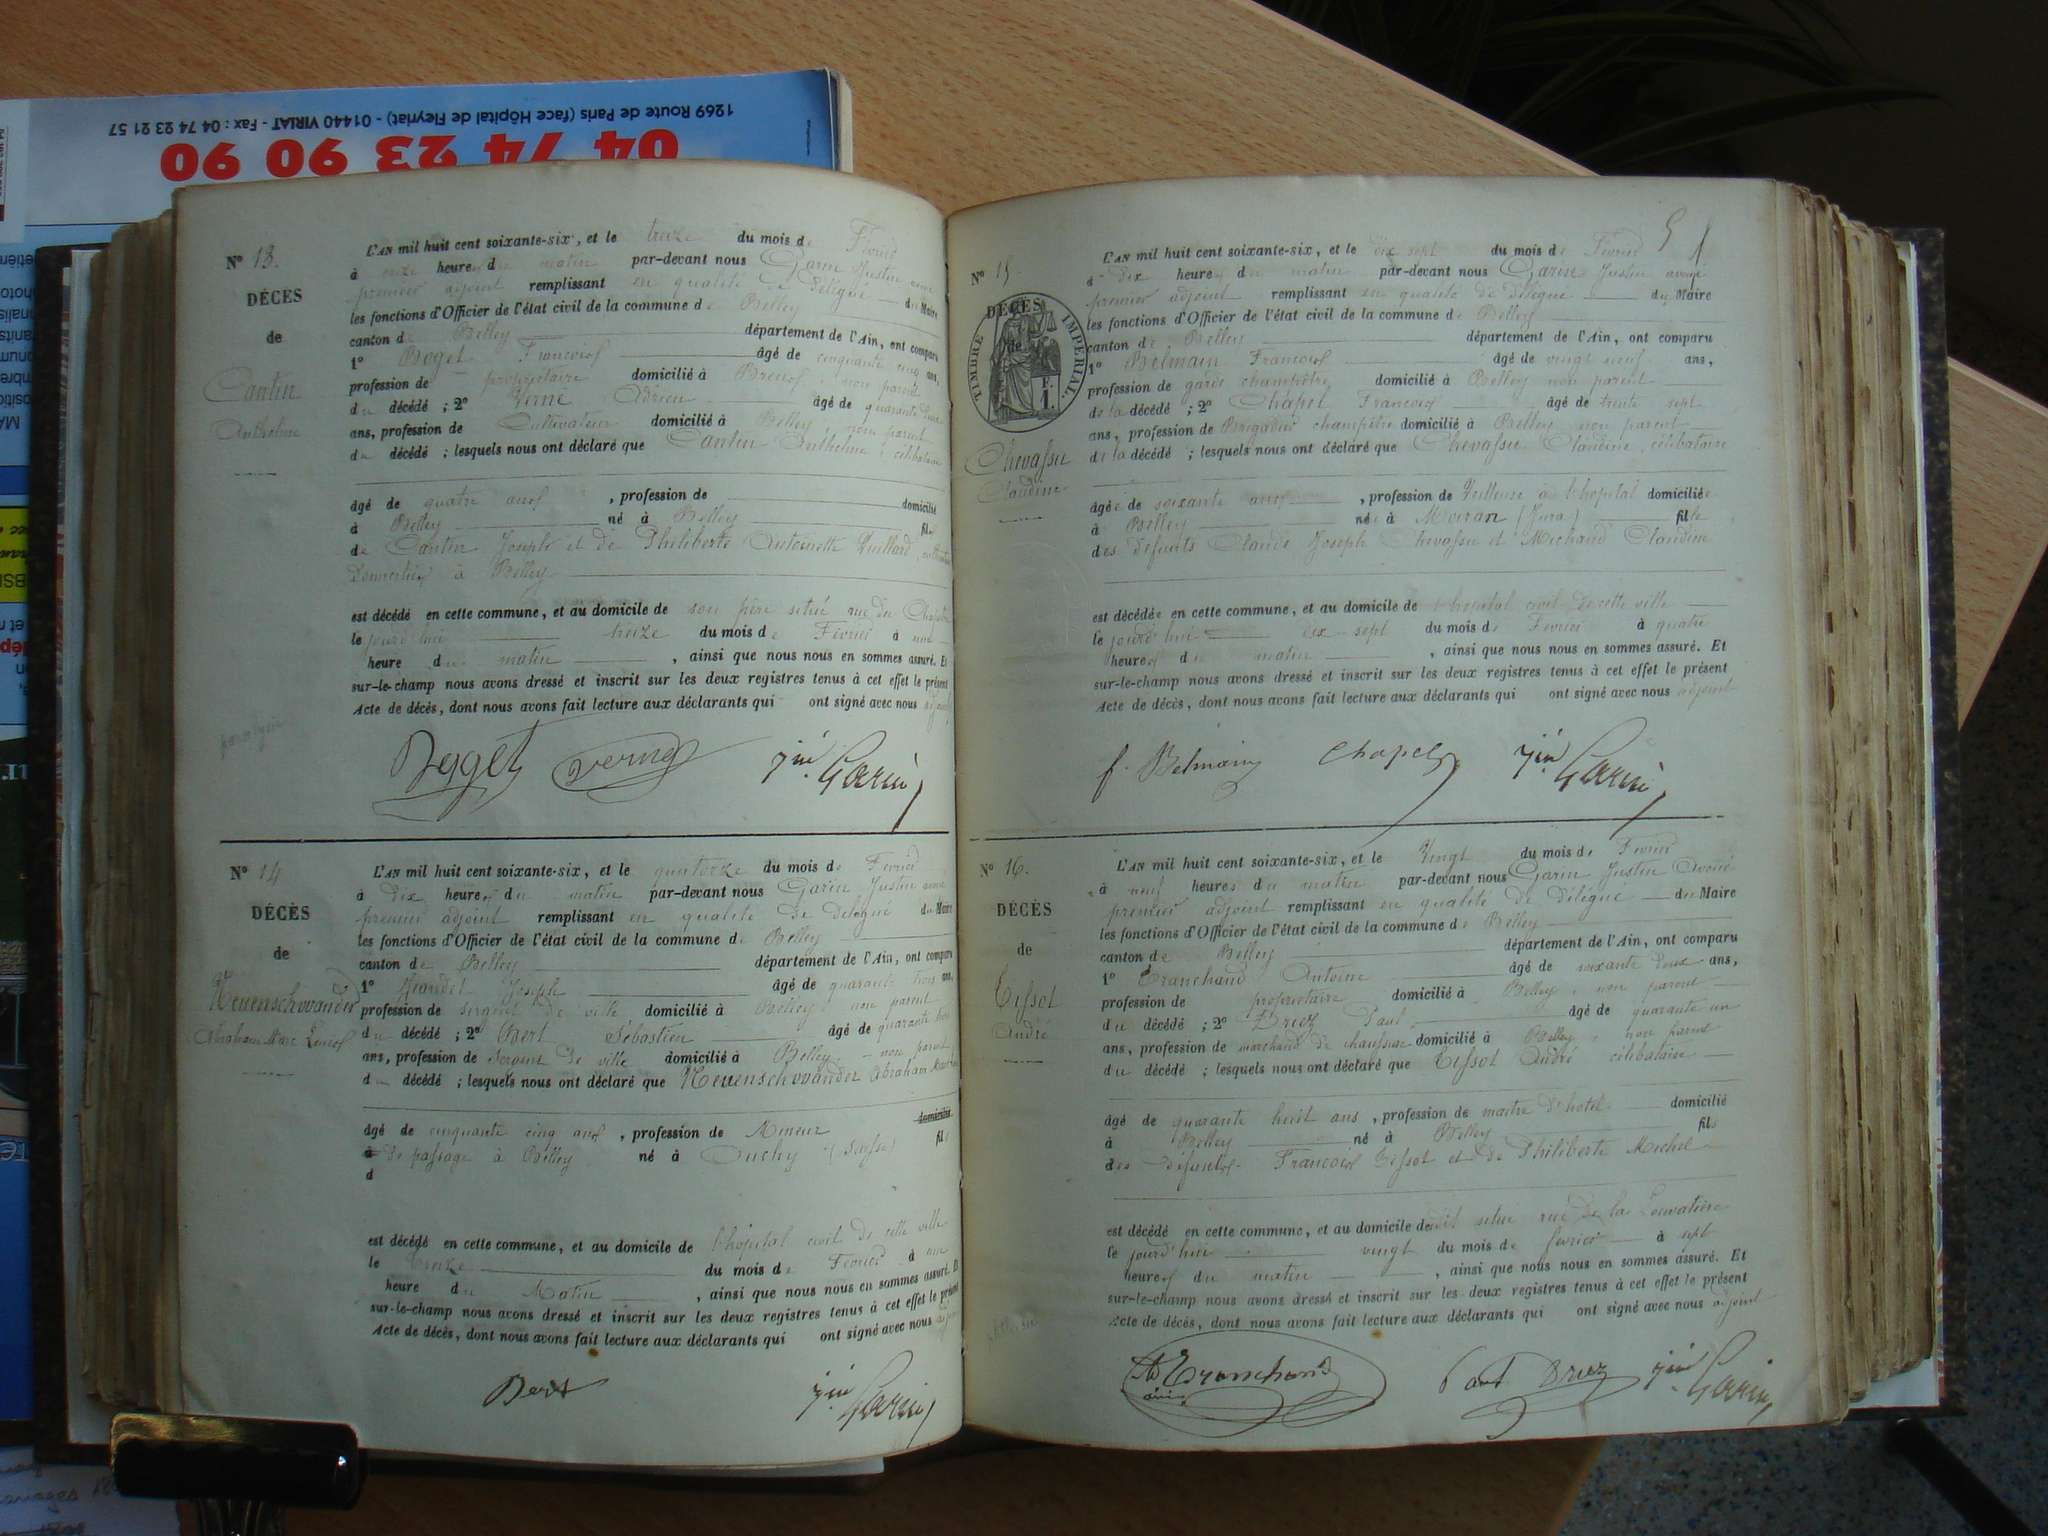 1269 Route de Paris (face Hôpital de Fleyriat) - 01440 VIRIAT - Fax : 04 74 23 21 57
04 74 23 90 90
N° 13.
DÉCÈS
de
Cantin
Anthelme
L'AN mil huit cent soixante-six, et le treize du mois de Février
à onze heures du matin par-devant nous Garin Justin avoué
premier adjoint remplissant en qualité de délégué du Maire
les fonctions d'Officier de l'état civil de la commune de Belley
canton de Belley département de l'Ain, ont comparu
1° Doget François âgé de cinquante cinq ans,
profession de propriétaire domicilié à Brens, non parent
du décédé ; 2° Verne Adrien âgé de quarante
ans, profession de Cultivateur domicilié à Belley non parent
du décédé ; lesquels nous ont déclaré que Cantin Anthelme, célibataire
âgé de quatre ans , profession de domicilié
à Belley né à Belley fils
de Cantin Joseph et de Philiberte Antoinette Vuillard,
domiciliés à Belley
est décédé en cette commune, et au domicile de son père situé rue du Chapitre
le jourd'hui treize du mois de Février à une
heure du matin , ainsi que nous nous en sommes assuré. Et
sur-le-champ nous avons dressé et inscrit sur les deux registres tenus à cet effet le présent
Acte de décès, dont nous avons fait lecture aux déclarants qui ont signé avec nous adjoint
Doget Verne Jin Garin
N° 14
DÉCÈS
de
Neuenschwander
Abraham Marc Louis
L'AN mil huit cent soixante-six, et le quatorze du mois de Février
à dix heures du matin par-devant nous Garin Justin avoué
premier adjoint remplissant en qualité de délégué du Maire
les fonctions d'Officier de l'état civil de la commune de Belley
canton de Belley département de l'Ain, ont comparu
1° Joseph âgé de quarante trois ans,
profession de sergent de ville domicilié à Belley non parent
du décédé ; 2° Bert Sébastien âgé de quarante
ans, profession de sergent de ville domicilié à Belley non parent
du décédé ; lesquels nous ont déclaré que Neuenschwander Abraham Marc
âgé de cinquante cinq ans , profession de Mineur domicilié
à de passage à Belley né à Ouchy (Suisse) fils
d
est décédé en cette commune, et au domicile de l'hôpital civil de cette ville
le treize du mois de Février à une
heure du Matin , ainsi que nous nous en sommes assuré. Et
sur-le-champ nous avons dressé et inscrit sur les deux registres tenus à cet effet le présent
Acte de décès, dont nous avons fait lecture aux déclarants qui ont signé avec nous adjoint
Bert Jin Garin
N° 15
DÉCÈS
de
TIMBRE IMPÉRIAL
F.
1.
Chevassu
Claudine
L'AN mil huit cent soixante-six, et le dix sept du mois de Février
à dix heures du matin par-devant nous Garin Justin avoué
premier adjoint remplissant en qualité de délégué du Maire
les fonctions d'Officier de l'état civil de la commune de Belley
canton de Belley département de l'Ain, ont comparu
1° Belmain François âgé de vingt neuf ans,
profession de garde champêtre domicilié à Belley non parent
de la décédé ; 2° Chapel François âgé de trente sept
ans, profession de Brigadier champêtre domicilié à Belley non parent
de la décédé ; lesquels nous ont déclaré que Chevassu Claudine, célibataire
âgée de soixante ans , profession de Veilleuse à l'hôpital domiciliée
à Belley née à Moiran (Jura) fille
des défunts Claude Joseph Chevassu et Michaud Claudine
est décédée en cette commune, et au domicile de l'hôpital civil de cette ville
le jourd'hui dix sept du mois de Février à quatre
heures du matin , ainsi que nous nous en sommes assuré. Et
sur-le-champ nous avons dressé et inscrit sur les deux registres tenus à cet effet le présent
Acte de décès, dont nous avons fait lecture aux déclarants qui ont signé avec nous adjoint
f. Belmain Chapel Jin Garin
N° 16.
DÉCÈS
de
Tissot
André
L'AN mil huit cent soixante-six, et le Vingt du mois de Février
à neuf heures du matin par-devant nous Garin Justin Avoué
premier adjoint remplissant en qualité de délégué du Maire
les fonctions d'Officier de l'état civil de la commune de Belley
canton de Belley département de l'Ain, ont comparu
1° Tranchand Antoine âgé de soixante deux ans,
profession de propriétaire domicilié à Belley, non parent
du décédé ; 2° Driez Paul, âgé de quarante un
ans, profession de marchand de chaussures domicilié à Belley, non parent
du décédé ; lesquels nous ont déclaré que Tissot André célibataire
âgé de quarante huit ans , profession de maître d'hôtel domicilié
à Belley né à Belley fils
des défunts François Tissot et de Philiberte Michel
est décédé en cette commune, et au domicile dudit situé rue de la Louvatière
le jourd'hui vingt du mois de février à sept
heures du matin , ainsi que nous nous en sommes assuré. Et
sur-le-champ nous avons dressé et inscrit sur les deux registres tenus à cet effet le présent
Acte de décès, dont nous avons fait lecture aux déclarants qui ont signé avec nous adjoint
Tranchand Paul Driez Jin Garin